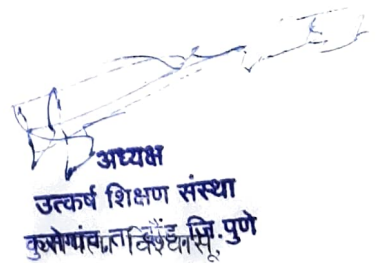 अध्यक्ष
उत्कर्ष शिक्षण संस्था
कुसेगांव, ता. दौंड, जि. पुणे